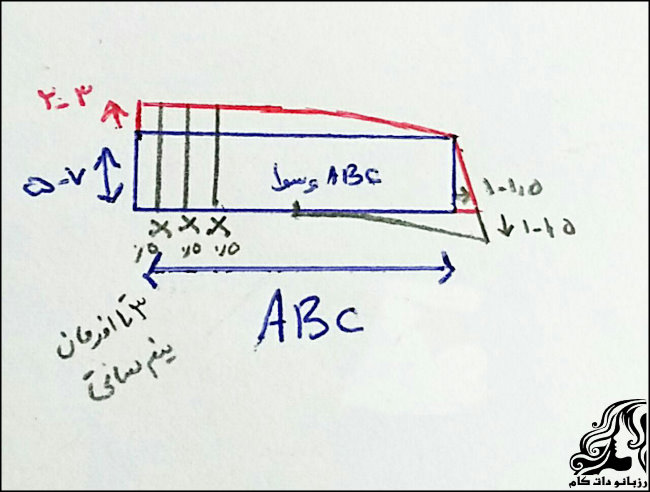 ۲-۳
۵-۷
وسط ABC
۱-۱,۵
۱-۱,۵
/۵ /۵ /۵
ABC
۳ تا اوزمان
نیم سانتی
رزبانو دات کام